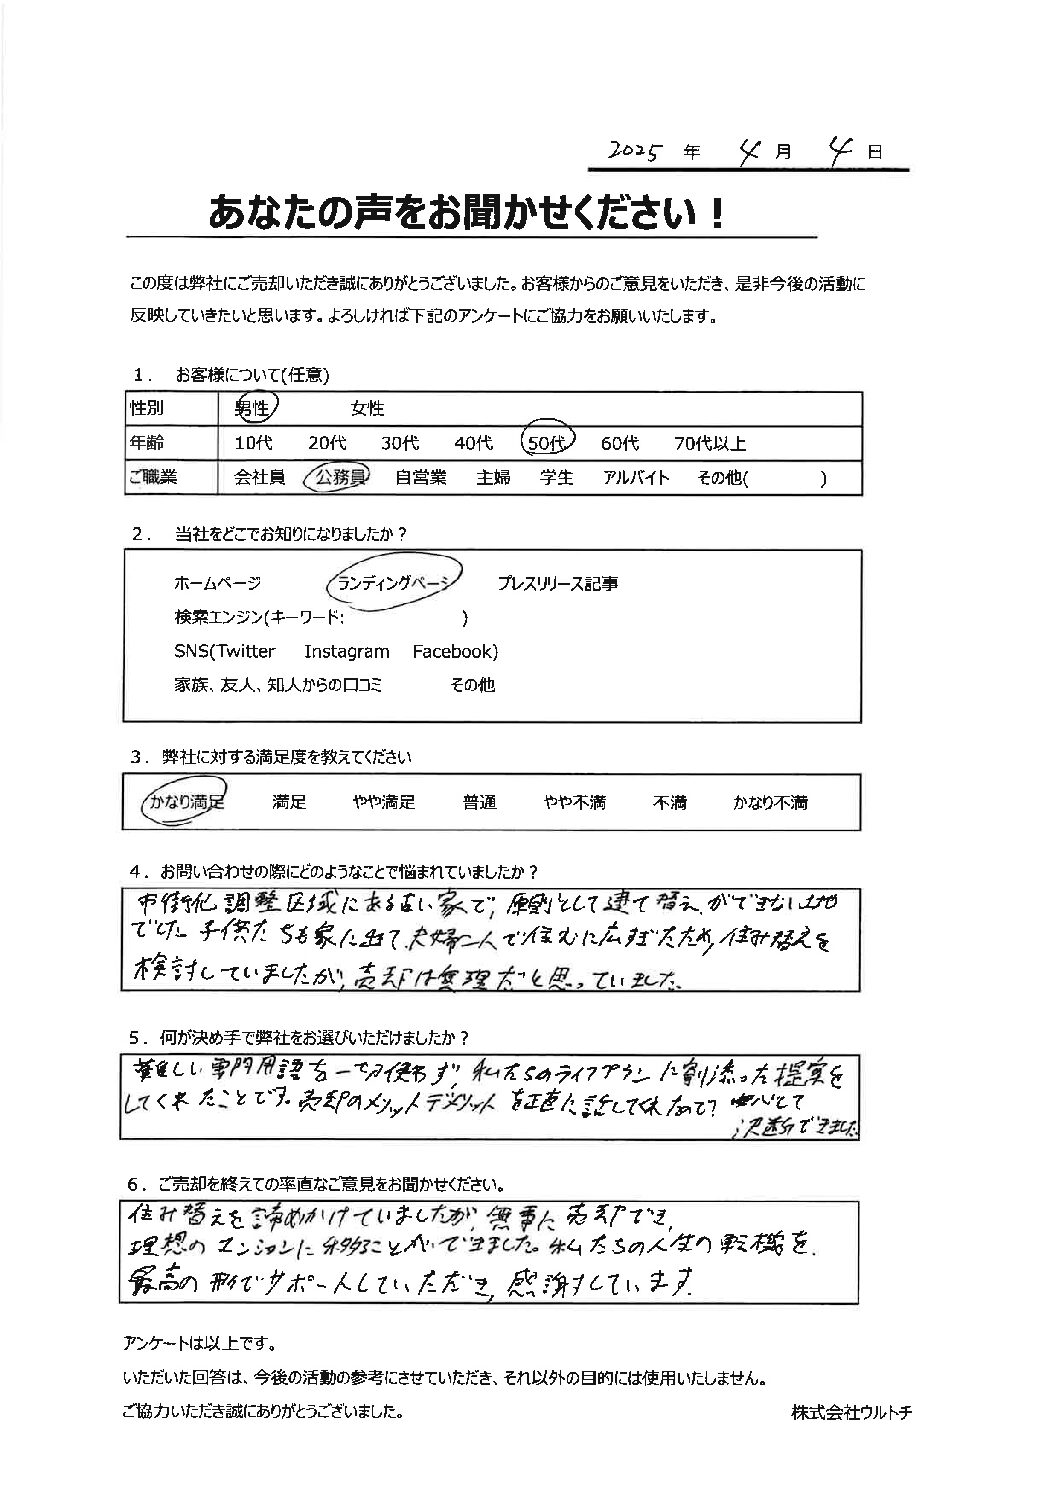 2025 年 4 月 4 日
あなたの声をお聞かせください！
この度は弊社にご売却いただき誠にありがとうございました。お客様からのご意見をいただき、是非今後の活動に
反映していきたいと思います。よろしければ下記のアンケートにご協力をお願いいたします。
1． お客様について(任意)
性別 男性 女性
年齢 10代 20代 30代 40代 50代 60代 70代以上
ご職業 会社員 公務員 自営業 主婦 学生 アルバイト その他( )
2． 当社をどこでお知りになりましたか？
ホームページ ランディングページ プレスリリース記事
検索エンジン(キーワード: )
SNS(Twitter Instagram Facebook)
家族、友人、知人からの口コミ その他
3．弊社に対する満足度を教えてください
かなり満足 満足 やや満足 普通 やや不満 不満 かなり不満
4．お問い合わせの際にどのようなことで悩まれていましたか？
市街化調整区域にある古い家で、原則として建て替えができない土地
でした。子供たちも家に出て、夫婦二人で住むに広すぎたため、住み替えを
検討していましたが、売却は無理だと思っていました。
5．何が決め手で弊社をお選びいただけましたか？
難しい専門用語を一切使わず、私たちのライフプランに寄り添った提案を
してくれたことです。売却のメリットデメリットを正直に話してくれたので、安心して
決断できました
6．ご売却を終えての率直なご意見をお聞かせください。
住み替えを諦めかけていましたが、無事に売却でき、
理想のマンションに移ることができました。私たちの人生の転機を、
最高の形でサポートしていただき、感謝しています。
アンケートは以上です。
いただいた回答は、今後の活動の参考にさせていただき、それ以外の目的には使用いたしません。
ご協力いただき誠にありがとうございました。
株式会社ウルトチ